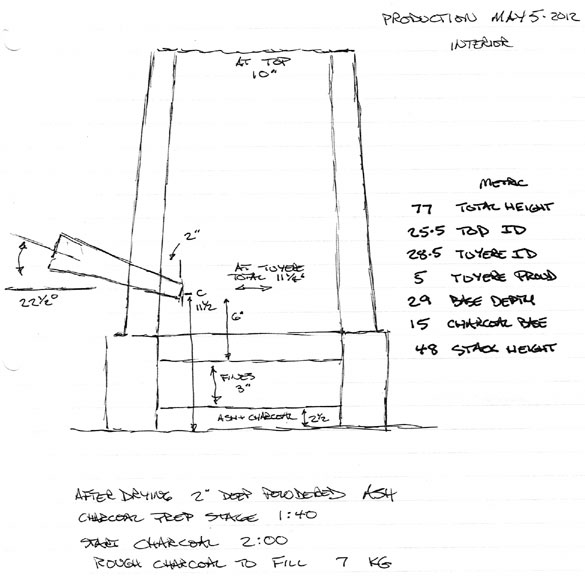 PRODUCTION MAY 5 · 2012
INTERIOR
AT TOP
10"
METRIC
77 TOTAL HEIGHT
25.5 TOP ID
28.5 TUYERE ID
5 TUYERE PROUD
29 BASE DEPTH
15 CHARCOAL BASE
48 STACK HEIGHT
2"
22½°
AT TUYERE
TOTAL 11¼"
C
11½
6"
FINES
3"
ASH + CHARCOAL
2½
AFTER DRYING 2" DEEP POWDERED ASH
CHARCOAL PREP STAGE 1:40
START CHARCOAL 2:00
ROUGH CHARCOAL TO FILL 7 KG